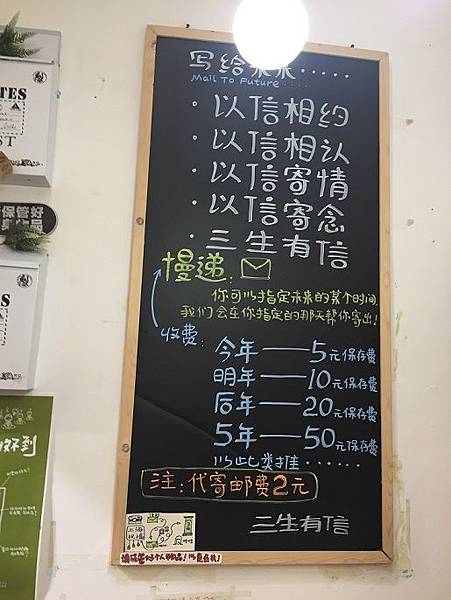 写给未来·····
Mail To Future ····
· 以信相约
· 以信相认
· 以信寄情
· 以信寄念
· 三生有信
慢递:
你可以指定未来的某个时间
我们会在你指定的那天帮你寄出!
收费:
今年——5元保存费
明年——10元保存费
后年——20元保存费
5年——50元保存费
以此类推······
注: 代寄邮费2元
三生有信
TES
ST
保管好
好到